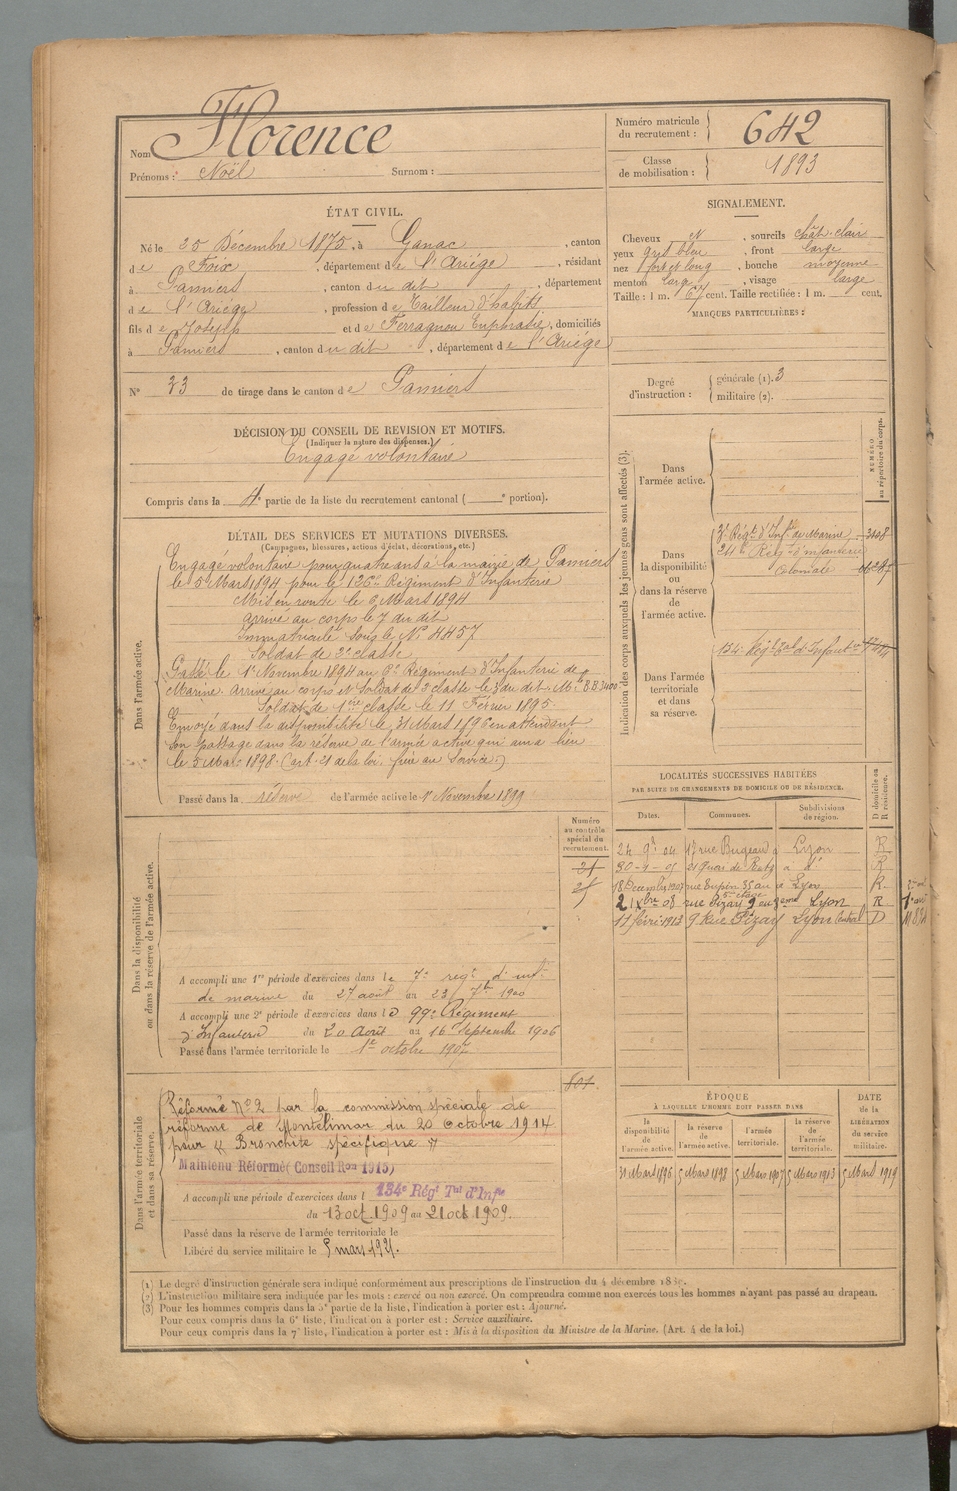 Nom Florence
Prénoms : Noël Surnom :
Numéro matricule du recrutement : 642
Classe de mobilisation : 1893
ÉTAT CIVIL.
Né le 25 Décembre 1875, à Ganac, canton
de Foix, département de l'Ariége, résidant
à Pamiers, canton du dit, département
de l'Ariége, profession de Tailleur d'habits
fils de Joseph et de Ferragneu Euphrasie, domiciliés
à Pamiers, canton du dit, département de l'Ariége
N° 23 de tirage dans le canton de Pamiers
SIGNALEMENT.
Cheveux N, sourcils chât. clair
yeux gris bleu, front large
nez fort et long, bouche moyenne
menton large, visage large
Taille : 1 m. 67 cent. Taille rectifiée : 1 m. cent.
MARQUES PARTICULIÈRES :
Degré d'instruction : générale (1). 3
militaire (2).
DÉCISION DU CONSEIL DE REVISION ET MOTIFS.
(Indiquer la nature des dispenses.)
Engagé volontaire
Compris dans la 4e partie de la liste du recrutement cantonal ( e portion).
DÉTAIL DES SERVICES ET MUTATIONS DIVERSES.
(Campagnes, blessures, actions d'éclat, décorations, etc.)
Dans l'armée active.
Engagé volontaire pour quatre ans à la mairie de Pamiers
le 5 Mars 1894 pour le 126e Régiment d'Infanterie
Mis en route le 6 Mars 1894
arrivé au corps le 7 du dit
Immatriculé sous le N° 4457
Soldat de 2e classe
Passé le 1er Novembre 1894 au Régiment d'Infanterie de
Marine. Arrivé au corps et Soldat de 2e classe le 3 du dit. Mle
Soldat de 1ère classe le 11 Février 1895.
Envoyé dans la disponibilité le 31 Mars 1896 en attendant
son passage dans la réserve de l'armée active qui aura lieu
le 5 Mars 1898. (art. 21 de la loi. frère au service.)
Passé dans la réserve de l'armée active le 1er Novembre 1899
Indication des corps auxquels les jeunes gens sont affectés (3).
NUMÉRO au répertoire du corps.
Dans l'armée active.
Dans la disponibilité ou dans la réserve de l'armée active.
Régt d'Infie de Marine 3408
24e Régt d'infanterie
Coloniale
Dans l'armée territoriale et dans sa réserve.
134e Régt Tal d'Infantie
LOCALITÉS SUCCESSIVES HABITÉES
PAR SUITE DE CHANGEMENTS DE DOMICILE OU DE RÉSIDENCE.
Dates. Communes. Subdivisions de région. D domicile ou R résidence.
24 9bre 04 17 rue Bugeaud Lyon R
30-1-05 21 Quai de Retz à dt R
18 Décembre 1907 rue Dupin 35 au à Lyon R
21 Xbre 08 rue Pizay 9 au 5eme étage Lyon R
11 févr. 1913 9 Rue Pizay Lyon Central D
Dans la disponibilité ou dans la réserve de l'armée active.
Numéro au contrôle spécial du recrutement.
A accompli une 1re période d'exercices dans le 7e régt d'infie
de marine du 27 août au 23 7bre 1900
A accompli une 2e période d'exercices dans le 99e Régiment
d'Infanterie du 20 Août au 16 Septembre 1906
Passé dans l'armée territoriale le 1er octobre 1907
Dans l'armée territoriale et dans sa réserve.
801
Réformé N° 2 par la commission spéciale de
réforme de Montélimar du 20 octobre 1914
pour « Bronchite spécifique »
Maintenu Réformé (Conseil Ron 1915)
A accompli une période d'exercices dans l 134e Régt Tal d'Infie
du 13 oct. 1909 au 21 oct 1909.
Passé dans la réserve de l'armée territoriale le
Libéré du service militaire le
ÉPOQUE
À LAQUELLE L'HOMME DOIT PASSER DANS
la disponibilité de l'armée active. la réserve de l'armée active. l'armée territoriale. la réserve de l'armée territoriale.
DATE de la LIBÉRATION du service militaire.
31 Mars 1896 5 Mars 1898 5 Mars 1907 5 Mars 1913 5 Mars 1919
(1) Le degré d'instruction générale sera indiqué conformément aux prescriptions de l'instruction du 4 décembre
(2) L'instruction militaire sera indiquée par les mots : exercé ou non exercé. On comprendra comme non exercés tous les hommes n'ayant pas passé au drapeau.
(3) Pour les hommes compris dans la 5e partie de la liste, l'indication à porter est : Ajourné.
Pour ceux compris dans la 6e liste, l'indication à porter est : Service auxiliaire.
Pour ceux compris dans la 7e liste, l'indication à porter est : Mis à la disposition du Ministre de la Marine. (Art. 4 de la loi.)